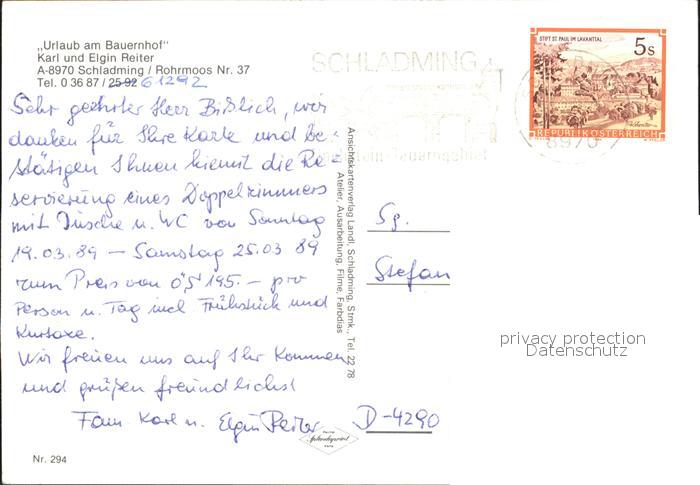 „Urlaub am Bauernhof"
Karl und Elgin Reiter
A-8970 Schladming / Rohrmoos Nr. 37
Tel. 0 36 87 / 25 92 61292
Sehr geehrter Herr Bißlich, wir
danken für Ihre Karte und be-
stätigen Ihnen hiemit die Re-
servierung eines Doppelzimmers
mit Dusche u. WC von Sonntag
19.03.89 – Samstag 25.03 89
zum Preis von ÖS 195.– pro
Person u. Tag incl Frühstück und
Kurtaxe.
Wir freuen uns auf Ihr Kommen
und grüßen freundlichst
Fam Karl u. Elgin Reiter
Nr. 294
Ansichtskartenverlag Landl, Schladming, Stmk., Tel. 22 78
Atelier, Ausarbeitung, Filme, Farbdias
SCHLADMING
8970
STIFT ST. PAUL IM LAVANTTAL
5s
REPUBLIK ÖSTERREICH
Sg.
Stefan
D-4290
privacy protection
Datenschutz